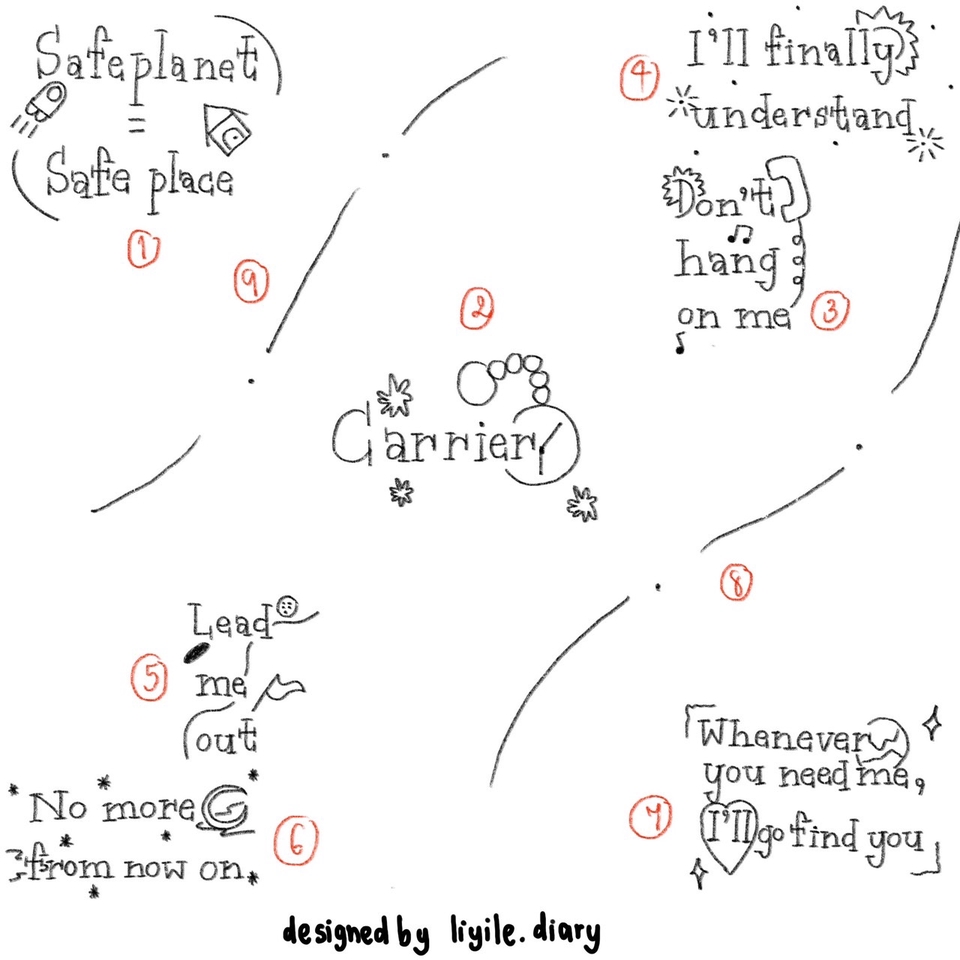 Safeplanet
=
Safe place
①
⑨
②
Carrier
④
I'll finally
understand
Don't
hang
on me
③
⑧
Lead
⑤
me
out
No more
from now on
⑥
Whenever
you need me,
⑦
I'll go find you
designed by liyile.diary